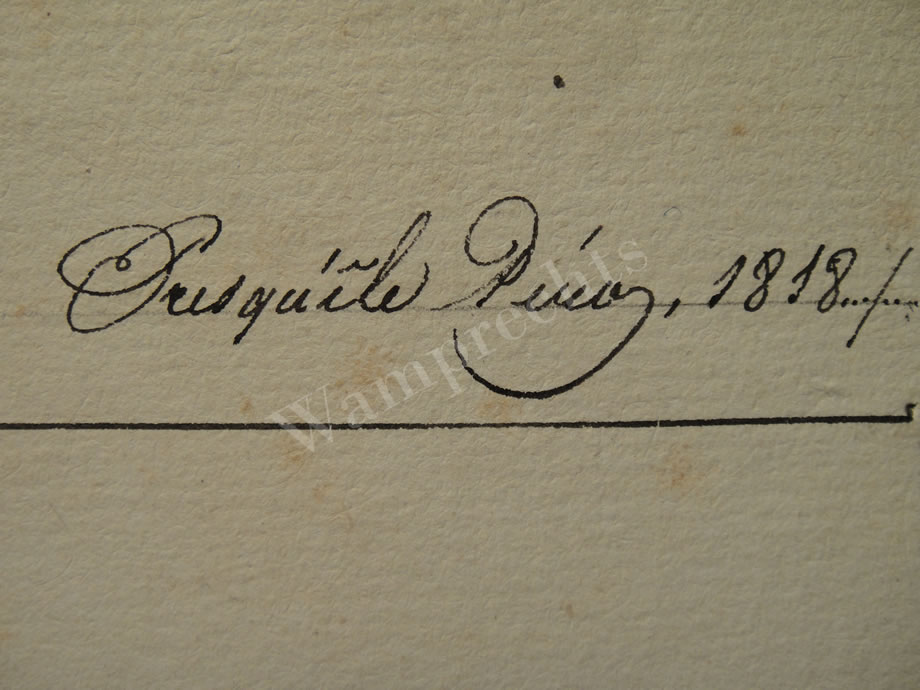 Presqu'île Ducos, 1818
Wamprechts